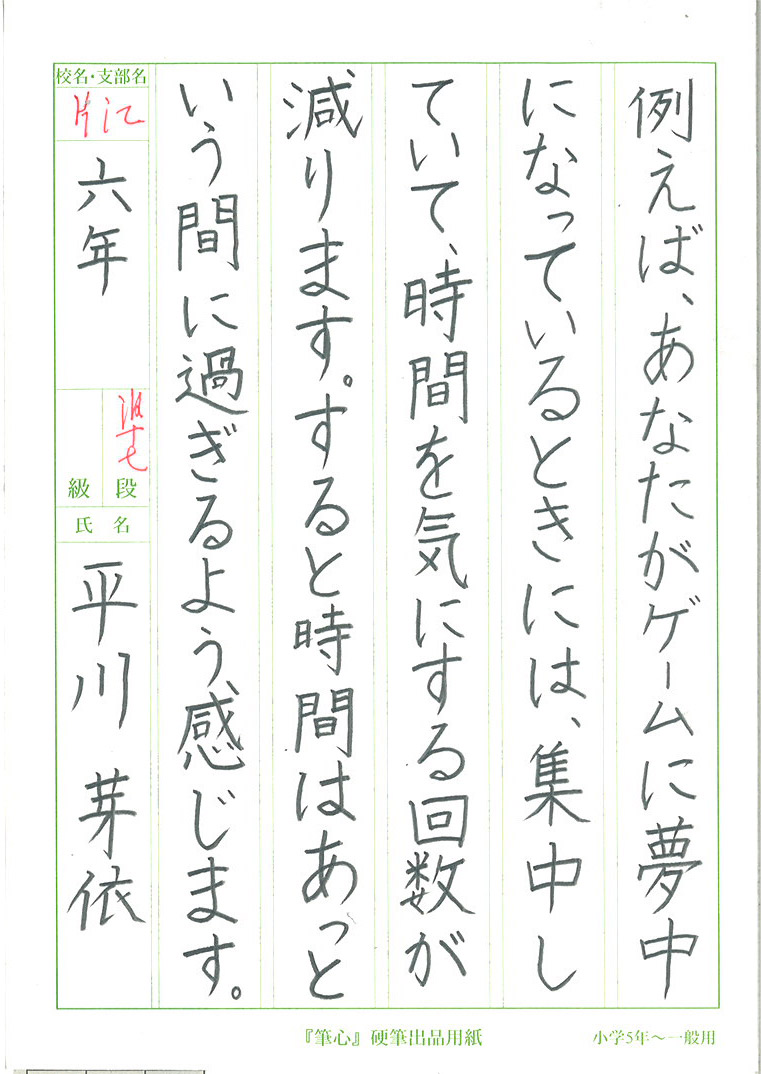 例えば、あなたがゲームに夢中
になっているときには、集中し
ていて、時間を気にする回数が
減ります。すると時間はあっと
いう間に過ぎるよう、感じます。
校名・支部名
片江
六年
段
級
氏名
平川 芽依
『筆心』硬筆出品用紙
小学5年〜一般用